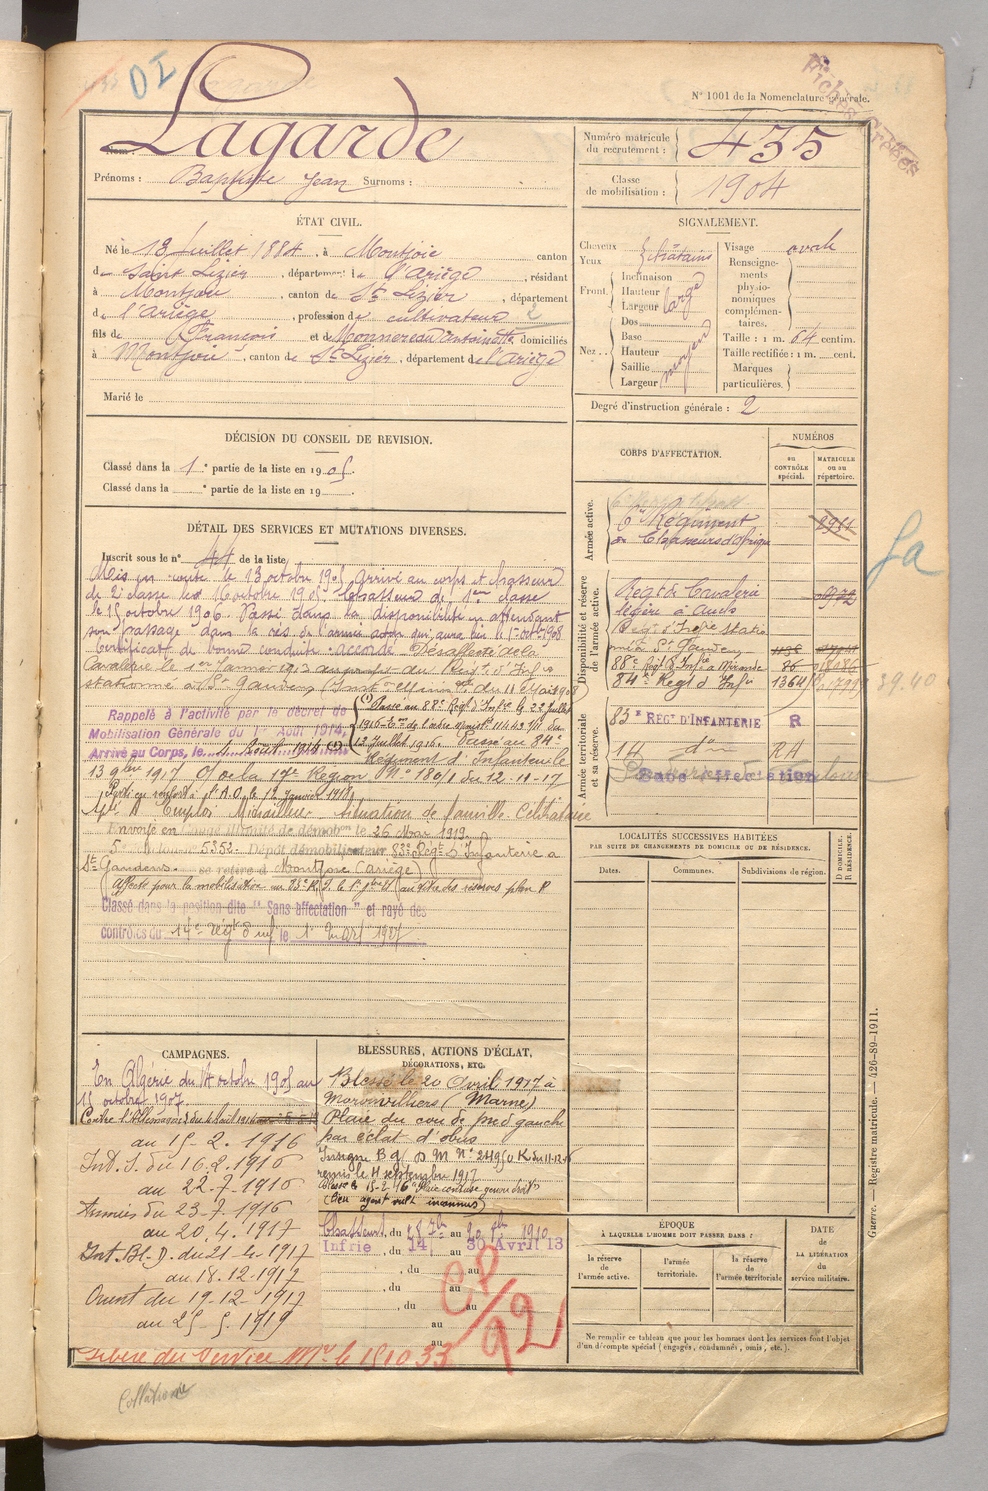 DI
N° 1001 de la Nomenclature générale.
Fiches Créées
Nom : Lagarde
Prénoms : Baptiste Jean Surnoms :
Numéro matricule du recrutement : 435
Classe de mobilisation : 1904
ÉTAT CIVIL.
Né le 13 Juillet 1884, à Montjoie canton
de Saint Lizier, département de l'Ariège, résidant
à Montjoie, canton de St Lizier, département
de l'Ariège, profession de cultivateur 2
fils de François et de Monnereau Antoinette domiciliés
à Montjoie, canton de St Lizier, département de l'Ariège
Marié le
SIGNALEMENT.
Cheveux
Yeux châtains
Front. Inclinaison
Hauteur
Largeur large
Nez.. Dos
Base
Hauteur
Saillie
Largeur moyen
Visage ovale
Renseignements physionomiques complémentaires.
Taille : 1 m. 64 centim.
Taille rectifiée : 1 m. cent.
Marques particulières.
Degré d'instruction générale : 2
DÉCISION DU CONSEIL DE REVISION.
Classé dans la 1e partie de la liste en 1905.
Classé dans la e partie de la liste en 19 .
CORPS D'AFFECTATION.
NUMÉROS
au CONTRÔLE spécial.
MATRICULE ou au répertoire.
Armée active.
6e Régiment
de Chasseurs d'Afrique
2951
Disponibilité et réserve de l'armée active.
Régt de Cavalerie
légère à Auch
Régt d'Infie statio
nné à St Gaudens
88e Régt d'Infie à Mirande 86
84e Régt d'Infie 1364
39.40
Armée territoriale et sa réserve.
83e REGt D'INFANTERIE R
14 do RA
Sans affectation
Ja
DÉTAIL DES SERVICES ET MUTATIONS DIVERSES.
Inscrit sous le n° 44 de la liste
Mis en route le 13 octobre 1905 arrivé au corps et chasseur
de 2e classe le 16 octobre 1905. Chasseur de 1ère classe
le 15 octobre 1906. Passé dans la disponibilité en attendant
son passage dans la rés. de l'armée active qui aura lieu le 1er octbre 1908
Certificat de bonne conduite accordé. Désaffecté de la
Cavalerie le 1er Janvier 1913 au profit du Régt d'Infie
stationné à St Gaudens
Rappelé à l'activité par le décret de
Mobilisation Générale du 1er Août 1914,
Arrivé au Corps, le 4 Août 1914 (1)
(1) Passé au 88e Régt d'Infie le 22 Juillet
1916
12 Juillet 1916. Passé au 84e
Régiment d'Infanterie le
13 9bre 1917 de la 17e Région N° 180/1 du 12-11-17
Parti en renfort à l'A.O. le 12 Janvier 1918
Apt à Emplois Mitrailleur - Situation de famille - Célibataire
Envoyé en Congé illimité de démobon le 26 Mars 1919.
5 échelon n° 5352. Dépôt démobilisateur 83e Régt d'Infanterie à
St Gaudens. se retire à Montjoie (Ariège)
Affecté pour la mobilisation au 83e R.I.
Classé dans la position dite "Sans affectation" et rayé des
contrôles du 14e régt d'inf le 1er Mars 1927
LOCALITÉS SUCCESSIVES HABITÉES
PAR SUITE DE CHANGEMENTS DE DOMICILE OU DE RÉSIDENCE.
Dates. Communes. Subdivisions de région.
D DOMICILE. R RÉSIDENCE.
CAMPAGNES.
En Algérie du 14 octobre 1905 au
15 octobre 1907.
Contre l'Allemagne du 4 Août 1914
au 15-2.1916
Int. S. du 16.2.1916
au 22-7-1916
Armées du 23-7-1916
au 20.4.1917
Int. Bl. D. du 21-4-1917
au 18.12.1917
Orient du 19-12-1917
au 25-3-1919
Libéré du Service Mre le 15 10 33
BLESSURES, ACTIONS D'ÉCLAT,
DÉCORATIONS, ETC.
Blessé le 20 Avril 1917 à
Moronvilliers (Marne)
Plaie du cou de pied gauche
par éclat d'obus
Insigne
remis le 11 septembre 1917
Blessé le 15-2-16 Plaie contuse genou droit
(lieu agent vult inconnus)
Chasseurs du 28 au 20 1910
Infrie du 14 au 30 Avril 13
, du au
, du au
, du au
au
au
CP/92
ÉPOQUE
À LAQUELLE L'HOMME DOIT PASSER DANS :
la réserve de l'armée active.
l'armée territoriale.
la réserve de l'armée territoriale
DATE DE LA LIBÉRATION du service militaire.
Ne remplir ce tableau que pour les hommes dont les services font l'objet
d'un décompte spécial (engagés, condamnés, omis, etc.).
Guerre. — Registre matricule. — 426-89-1911.
Collationné